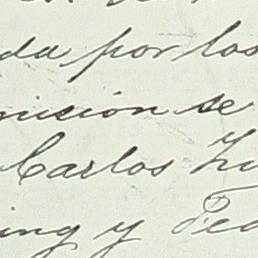 da por los
misión se
Carlos
ing y Ped